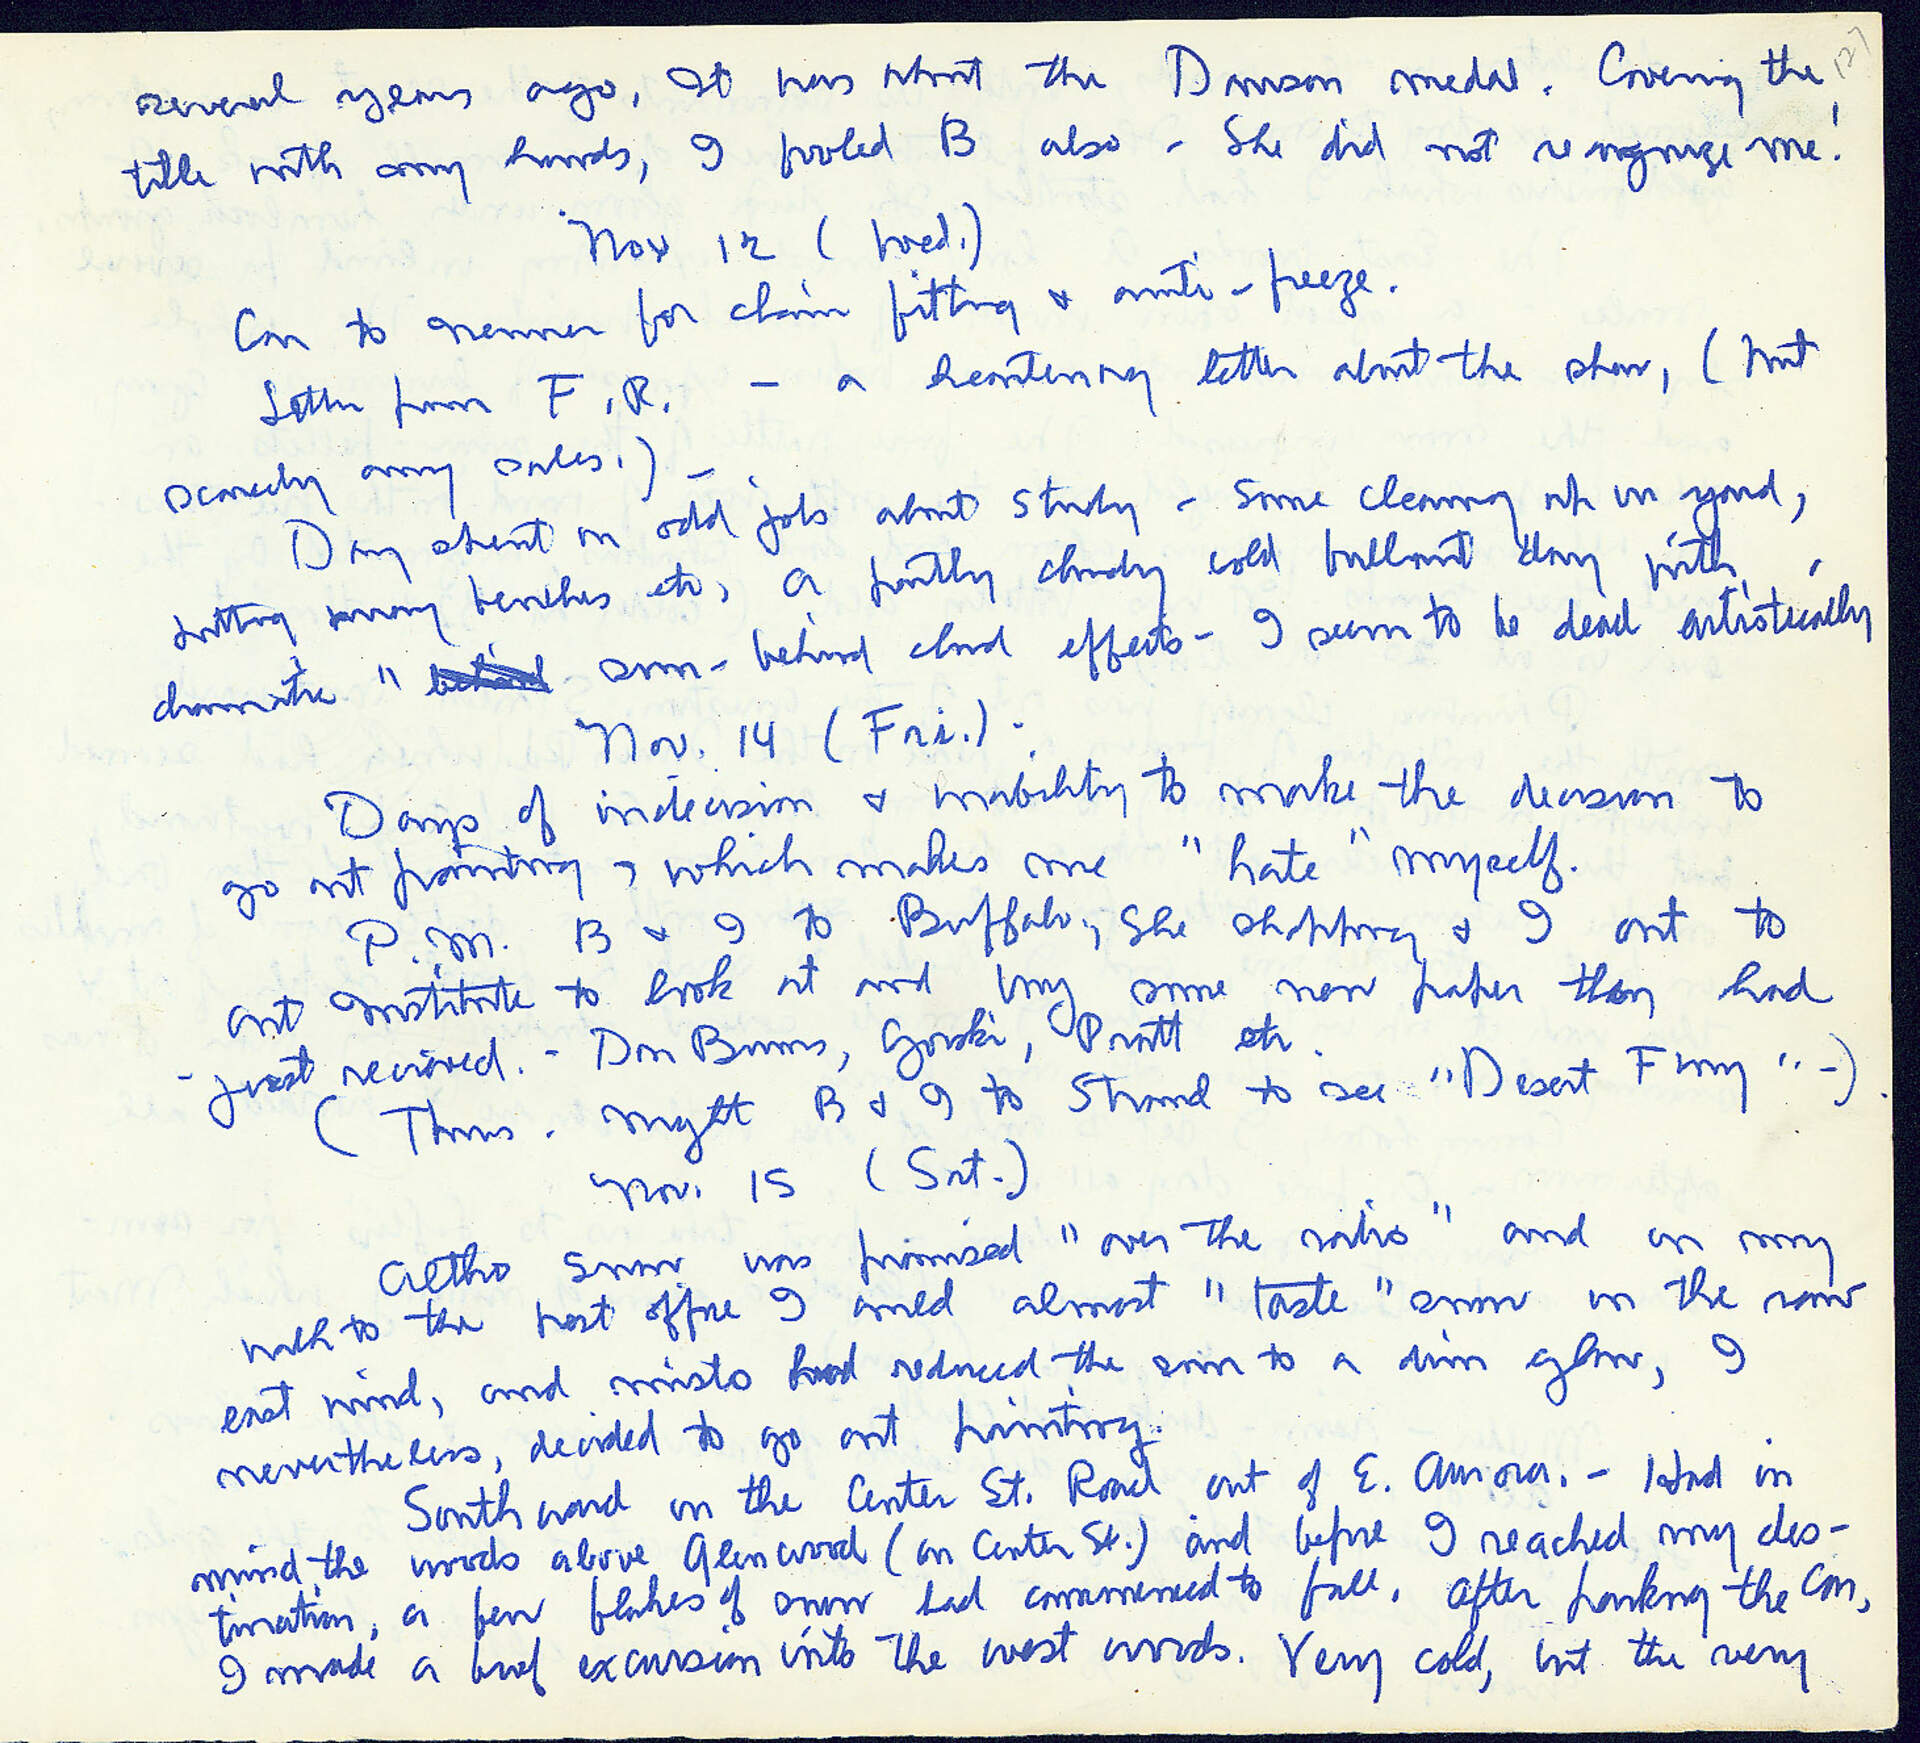 127
several years ago, It was about the Dawson medal. Covering the
title with my hands, I fooled B also - She did not recognize me!
Nov 12 (Wed.)
Car to for chain fitting & anti-freeze.
Letter from F.R. - a heartening letter about the show, (but
scarcely any sales.) -
Day spent on odd jobs about studio - Some cleaning up in yard,
putting away benches etc, A partly cloudy cold brilliant day with
dramatic " sun-behind cloud effects - I seem to be dead artistically
Nov. 14 (Fri.) -
Days of indecision & inability to make the decision to
go out painting, which makes me "hate" myself.
P.M. B & I to Buffalo, She shopping & I out to
art Institute to look at and buy some new paper they had
just received. - Don Burns, Gorski, Pratt etc.
(Thurs. night B & I to Strand to see "Desert Fury" -).
Nov. 15 (Sat.)
Altho snow was promised "over the radio" and on my
walk to the post office I could almost "taste" snow in the raw
east wind, and mists had reduced the sun to a dim glow, I
nevertheless, decided to go out painting.
Southward on the Center St. Road out of E. Aurora. - Had in
mind, the woods above Glenwood (on Center St.) and before I reached my des-
tination, a few flakes of snow had commenced to fall. After parking the car,
I made a brief excursion into the west woods. Very cold, but the very